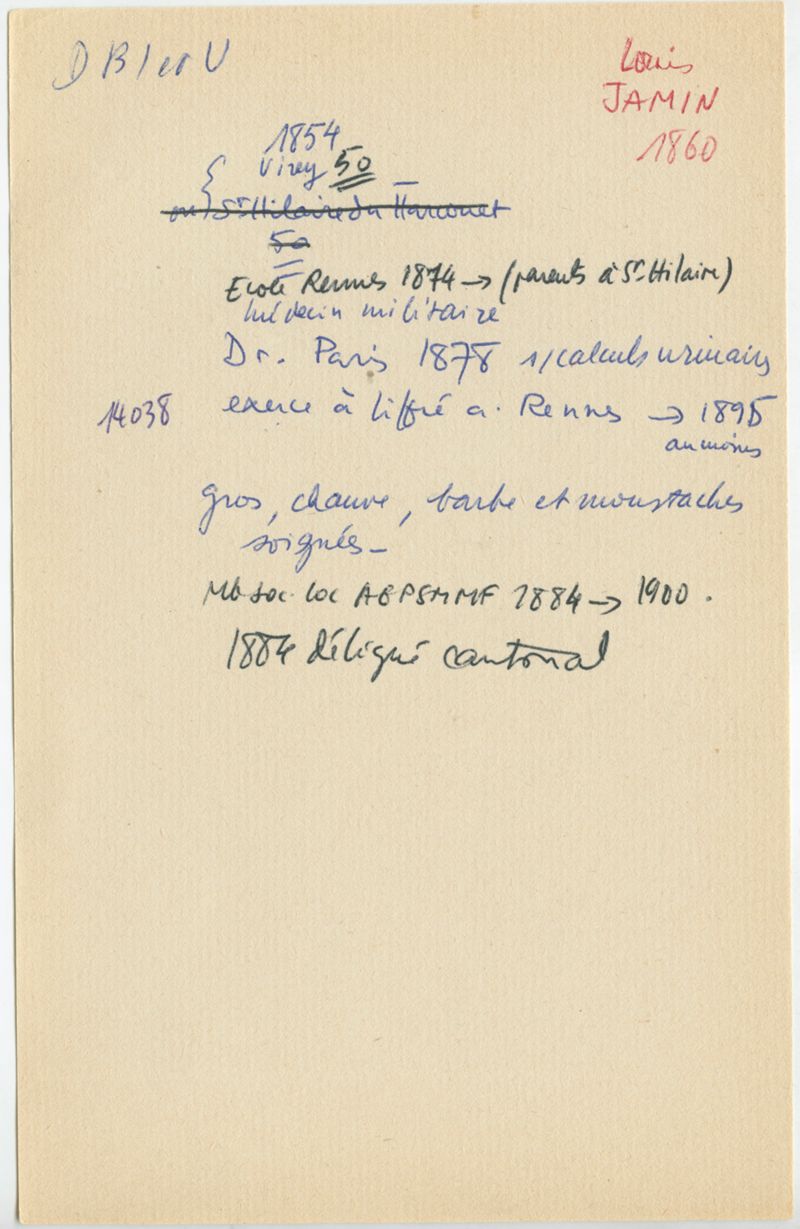 D B I et V
Louis
JAMIN
1860
1854
Virey 50
ou St Hilaire du Harcouet
50
Ecole Rennes 1874 → (parents à St Hilaire)
Médecin militaire
Dr. Paris 1878 s/calculs urinaires
14038 exerce à Liffré a. Rennes → 1895
au moins
gros, chauve, barbe et moustaches
soignées -
Mb soc. loc AGPSMMF 1884 → 1900.
1884 délégué cantonal